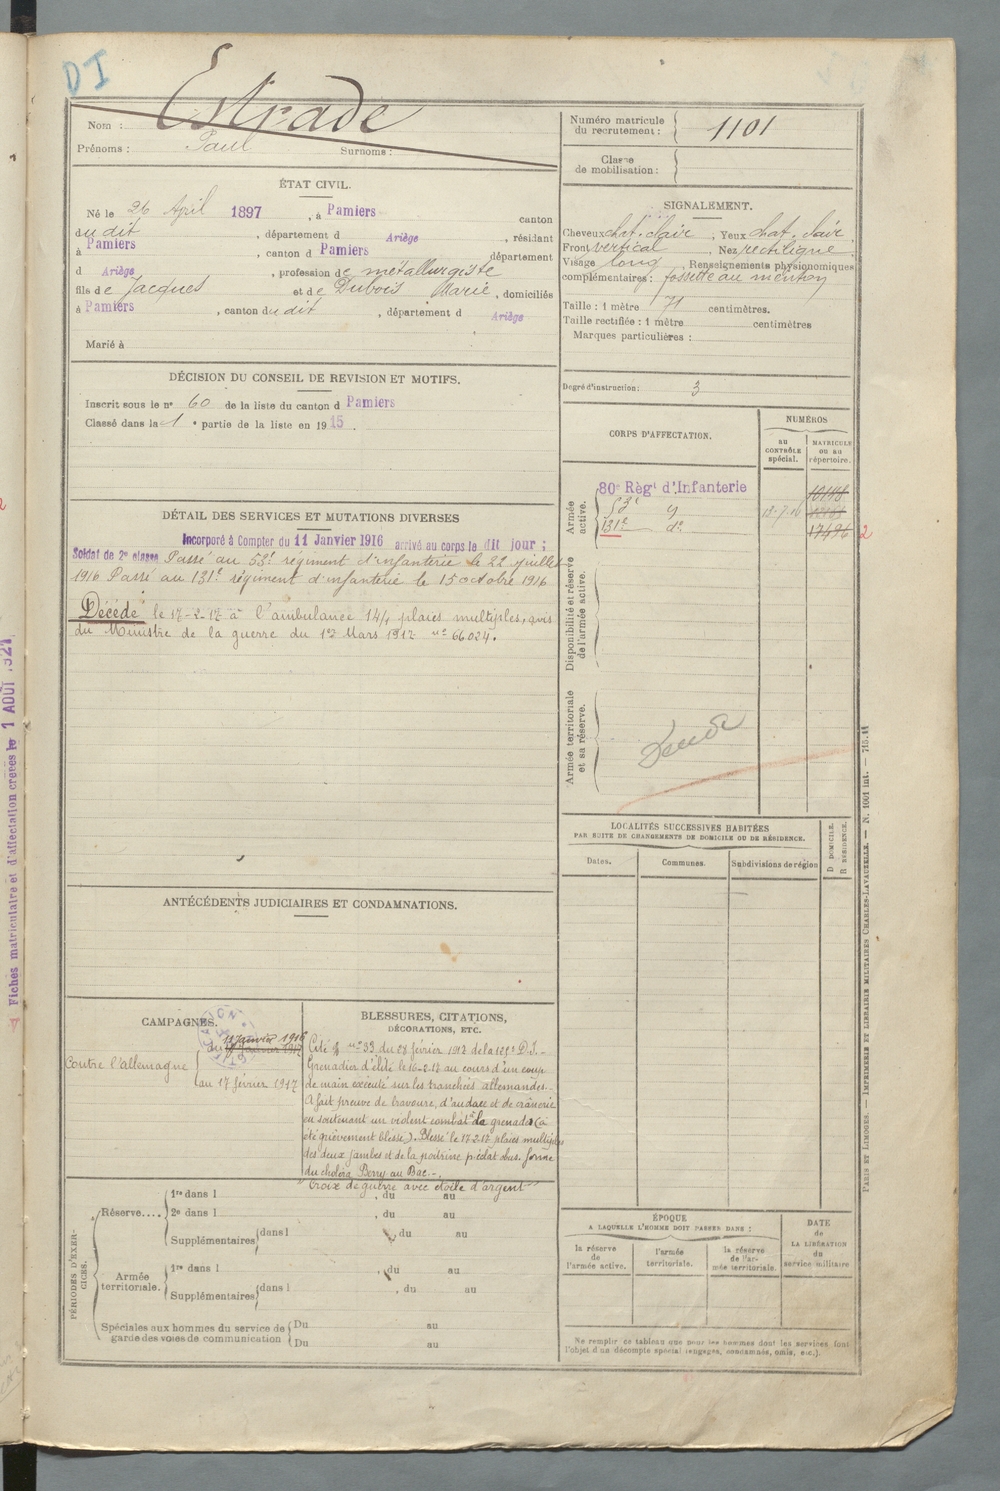 DI
Nom : Estrade
Prénoms : Paul Surnoms :
Numéro matricule du recrutement : 1101
Classe de mobilisation :
ÉTAT CIVIL.
Né le 26 April 1897, à Pamiers canton
du dit, département d Ariège, résidant
à Pamiers, canton d Pamiers département
d Ariège, profession de métallurgiste
fils de Jacques et de Dubois Marie, domiciliés
à Pamiers, canton du dit, département d Ariège
Marié à
SIGNALEMENT.
Cheveux chat. clair, Yeux chat. clair,
Front vertical, Nez rectiligne
Visage long, Renseignements physionomiques
complémentaires : fossette au menton
Taille : 1 mètre 71 centimètres.
Taille rectifiée : 1 mètre centimètres
Marques particulières :
Degré d'instruction : 3
DÉCISION DU CONSEIL DE REVISION ET MOTIFS.
Inscrit sous le n° 60 de la liste du canton d Pamiers
Classé dans la 1 e partie de la liste en 1915.
CORPS D'AFFECTATION.
NUMÉROS
au CONTRÔLE spécial.
MATRICULE ou au répertoire.
Armée active.
80e Régt d'Infanterie
53e
131e do 17496 2
Disponibilité et réserve de l'armée active.
Armée territoriale et sa réserve.
DÉTAIL DES SERVICES ET MUTATIONS DIVERSES
Incorporé à Compter du 11 Janvier 1916 arrivé au corps le dit jour ;
Soldat de 2e classe Passé au 53e régiment d'infanterie le 22 juillet
1916 Passé au 131e régiment d'infanterie le 15 octobre 1916
Décédé le 17-2-17 à l'ambulance 14/4 plaies multiples, avis
du Ministre de la guerre du 1er Mars 1917 no 66024.
Fiches matriculaire et d'affectation créées le 1 AOÛT 1921
LOCALITÉS SUCCESSIVES HABITÉES
PAR SUITE DE CHANGEMENTS DE DOMICILE OU DE RÉSIDENCE.
Dates. Communes. Subdivisions de région
D DOMICILE.
R RÉSIDENCE.
ANTÉCÉDENTS JUDICIAIRES ET CONDAMNATIONS.
CAMPAGNES.
11 Janvier 1916
du 11 Janvier 1917
Contre l'allemagne
au 17 février 1917
BLESSURES, CITATIONS,
DÉCORATIONS, ETC.
Cité no 33 du 28 février 1917 de la 125e D.I.-
Grenadier d'élite le 16-2-17 au cours d'un coup
de main exécuté sur les tranchées allemandes.
A fait preuve de bravoure, d'audace et de crânerie
en soutenant un violent combat à la grenade (a
été grièvement blessé). Blessé le 17 2-17 plaies multiples
des deux jambes et de la poitrine p. éclat obus. ferme
du choléra Berry au Bac.-
"Croix de guerre avec étoile d'argent"
PÉRIODES D'EXERCICES.
Réserve....
1re dans l , du au
2e dans l , du au
Supplémentaires dans l , du au
Armée territoriale.
1re dans l , du au
Supplémentaires dans l , du au
Spéciales aux hommes du service de garde des voies de communication
Du au
Du au
ÉPOQUE
A LAQUELLE L'HOMME DOIT PASSER DANS :
la réserve de l'armée active.
l'armée territoriale.
la réserve de l'armée territoriale.
DATE de LA LIBÉRATION du service militaire
Ne remplir ce tableau que pour les hommes dont les services font
l'objet d'un décompte spécial (engagés, condamnés, omis, etc.).
PARIS ET LIMOGES. — IMPRIMERIE ET LIBRAIRIE MILITAIRES CHARLES-LAVAUZELLE. — N. 1001 int. — 715.11